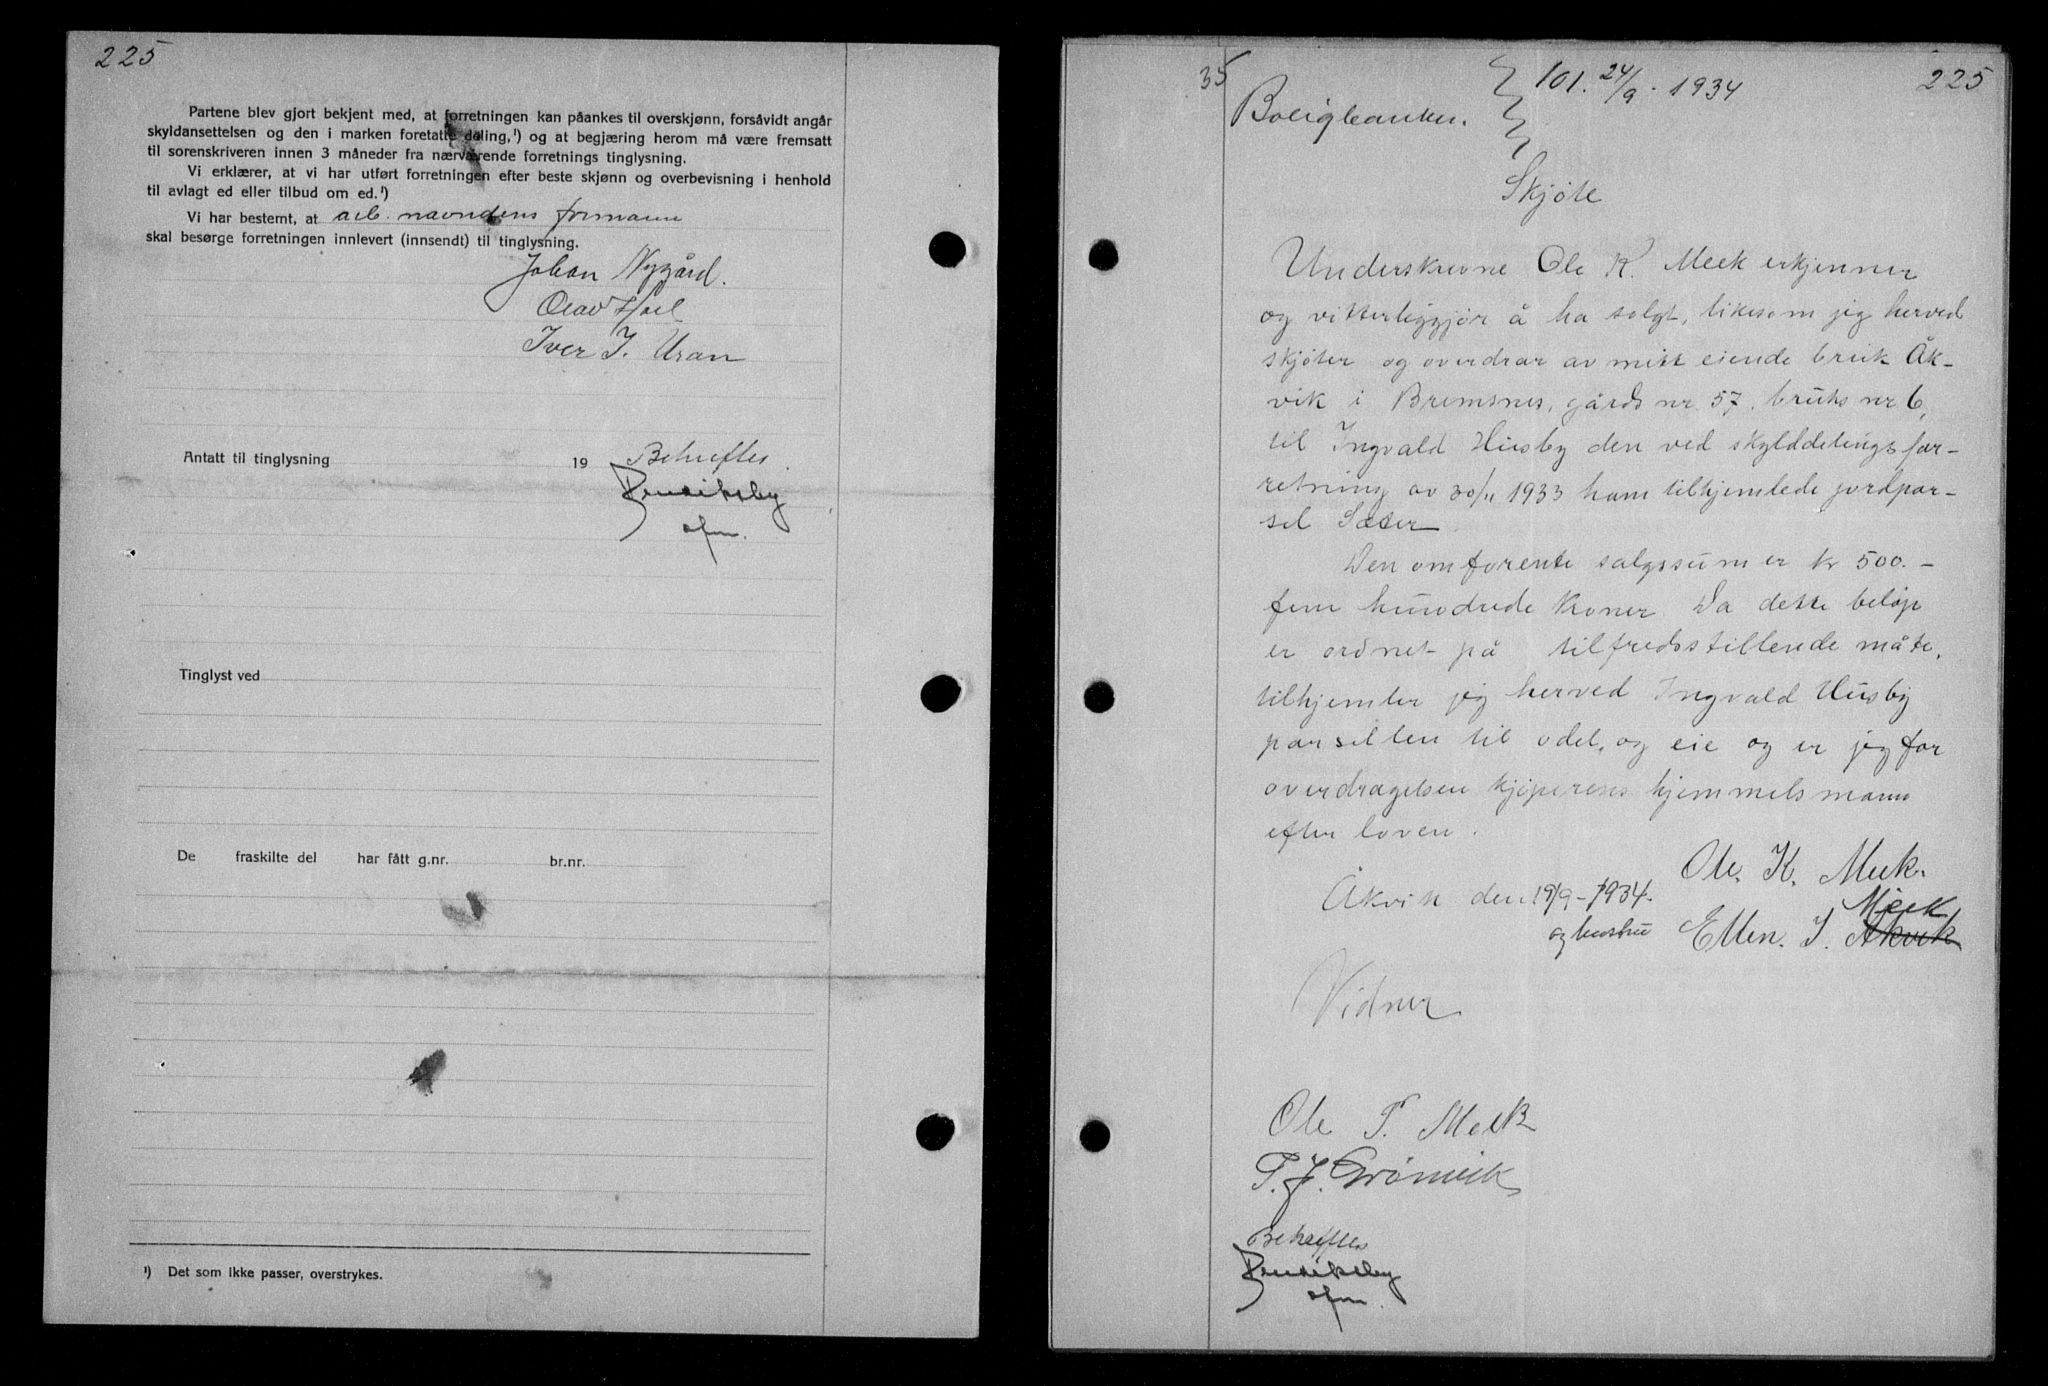 225
Partene blev gjort bekjent med, at forretningen kan påankes til overskjønn, forsåvidt angår
skyldansettelsen og den i marken foretatte deling,¹) og at begjæring herom må være fremsatt
til sorenskriveren innen 3 måneder fra nærværende forretnings tinglysning.
Vi erklærer, at vi har utført forretningen efter beste skjønn og overbevisning i henhold
til avlagt ed eller tilbud om ed.¹)
Vi har bestemt, at arb. navndens formann
skal besørge forretningen innlevert (innsendt) til tinglysning.
Johan Nygård.
Olav Hoel
Iver I. Uran
Antatt til tinglysning 19
Bekreftes
Tinglyst ved
De fraskilte del har fått g.nr. br.nr.
¹) Det som ikke passer, overstrykes.
35
101. 24/9 - 1934
225
Boligbanken.
Skjøte
Underskrevne Ole K. Meek erkjenner
og vitterliggjør å ha solgt, likesom jeg herved
skjøter og overdrar av mitt eiende bruk Åk-
vik i Bremsnes, gårds nr. 57, bruks nr 6,
til Ingvald Husby den ved skylddelingsfor-
retning av 30/11 1933 ham tilhjemlede jordpar-
sel Sæter
Den omforente salgssum er kr 500.-
fem hundrede kroner. Da dette beløp
er ordnet på tilfredsstillende måte,
tilhjemler jeg herved Ingvald Husby
parsellen til odel, og eie og er jeg for
overdragelsen kjøperens hjemmelsmann
efter loven.
Ole. K. Meek.
Åkvik den 19/9-1934.
Meek
og hustru Ellen. I. Åkvik
Vidner
Ole P. Meek
P. J. Grønvik
Bekreftes